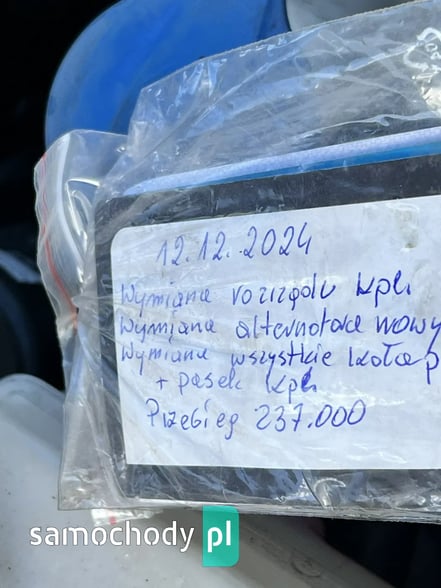 12.12.2024
Wymiana rozrządu kpl.
Wymiana alternatora nowy
Wymiana wszystkie koła p
+ pasek kpl.
Przebieg 237.000
samochody pl